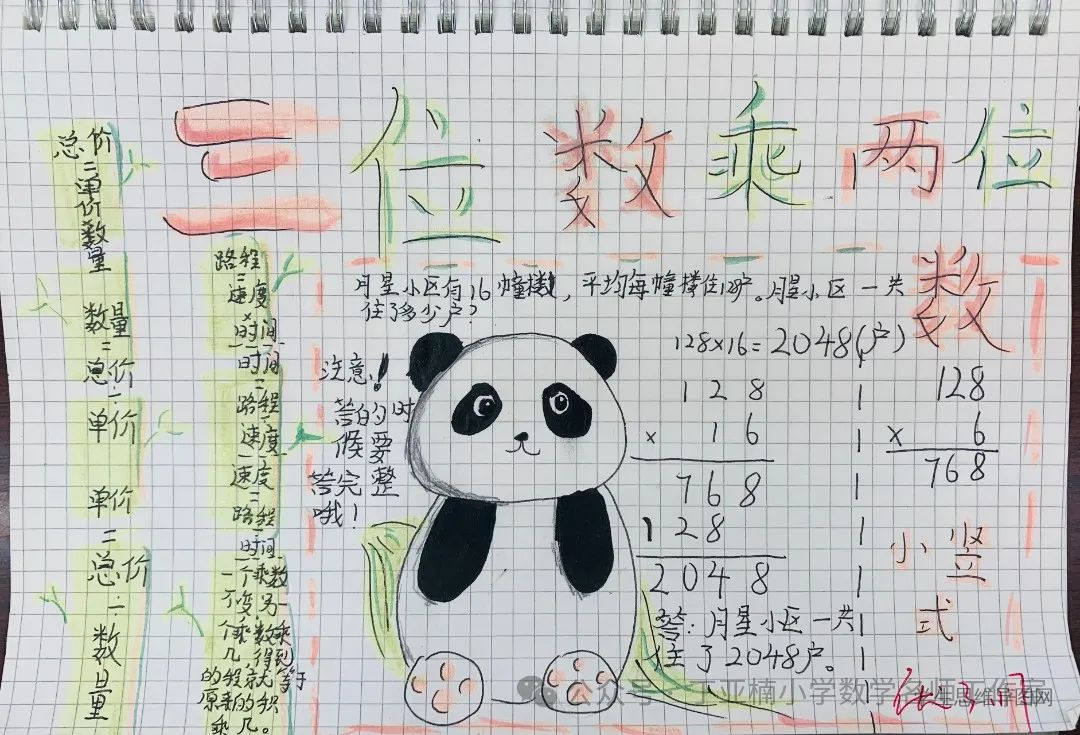 三位数乘两位
数
总价
=
单价
数量
数量
=
总价
÷
单价
单价
=
总价
÷
数量
路程
=
速度
×
时间
时间
=
路程
÷
速度
速度
=
路程
÷
时间
一个乘数
不变,另一
个乘数乘
几,得到
的积就等于
原来的积
乘几。
月星小区有16幢楼,平均每幢楼住128户。月星小区一共
住了多少户?
128×16=2048(户)
注意!
答的时
候要
答完整
哦!
128
× 16
768
128
2048
答:月星小区一共
住了2048户。
128
× 6
768
小竖
式
公众号·丁亚楠小学数学名师工作室
思维导图网